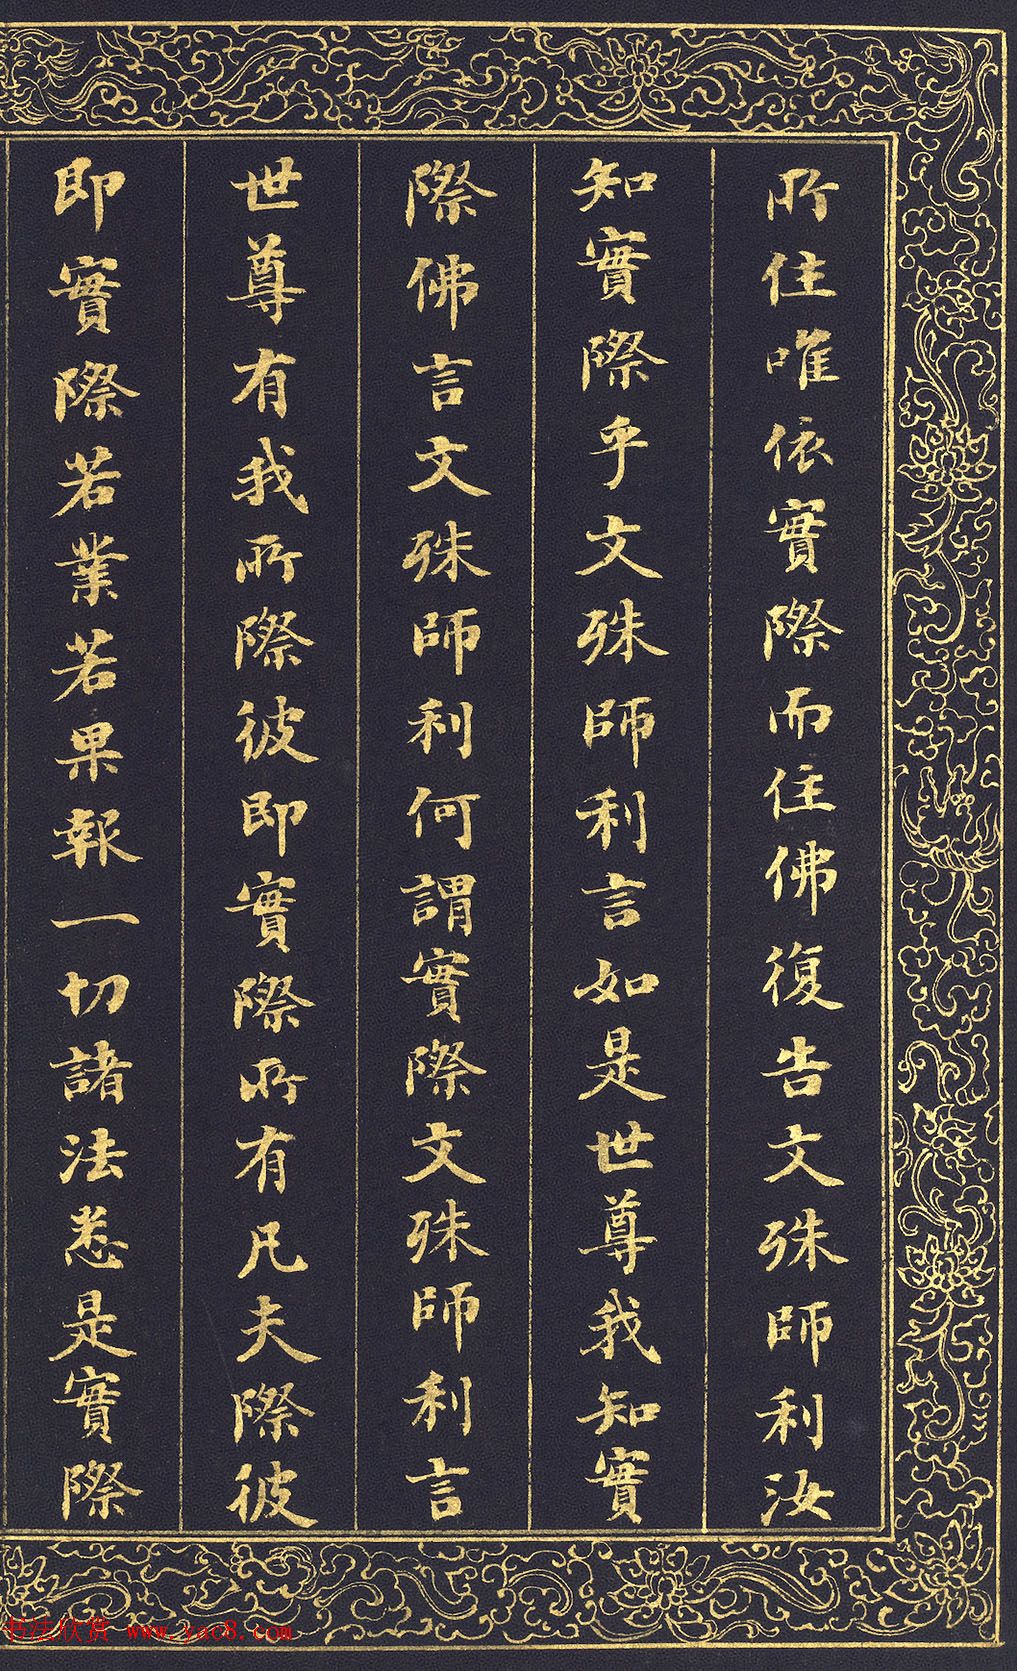 所住唯依實際而住佛復告文殊師利汝
知實際乎文殊師利言如是世尊我知實
際佛言文殊師利何謂實際文殊師利言
世尊有我所際彼即實際所有凡夫際彼
即實際若業若果報一切諸法悉是實際
书法欣赏 www.yac8.com